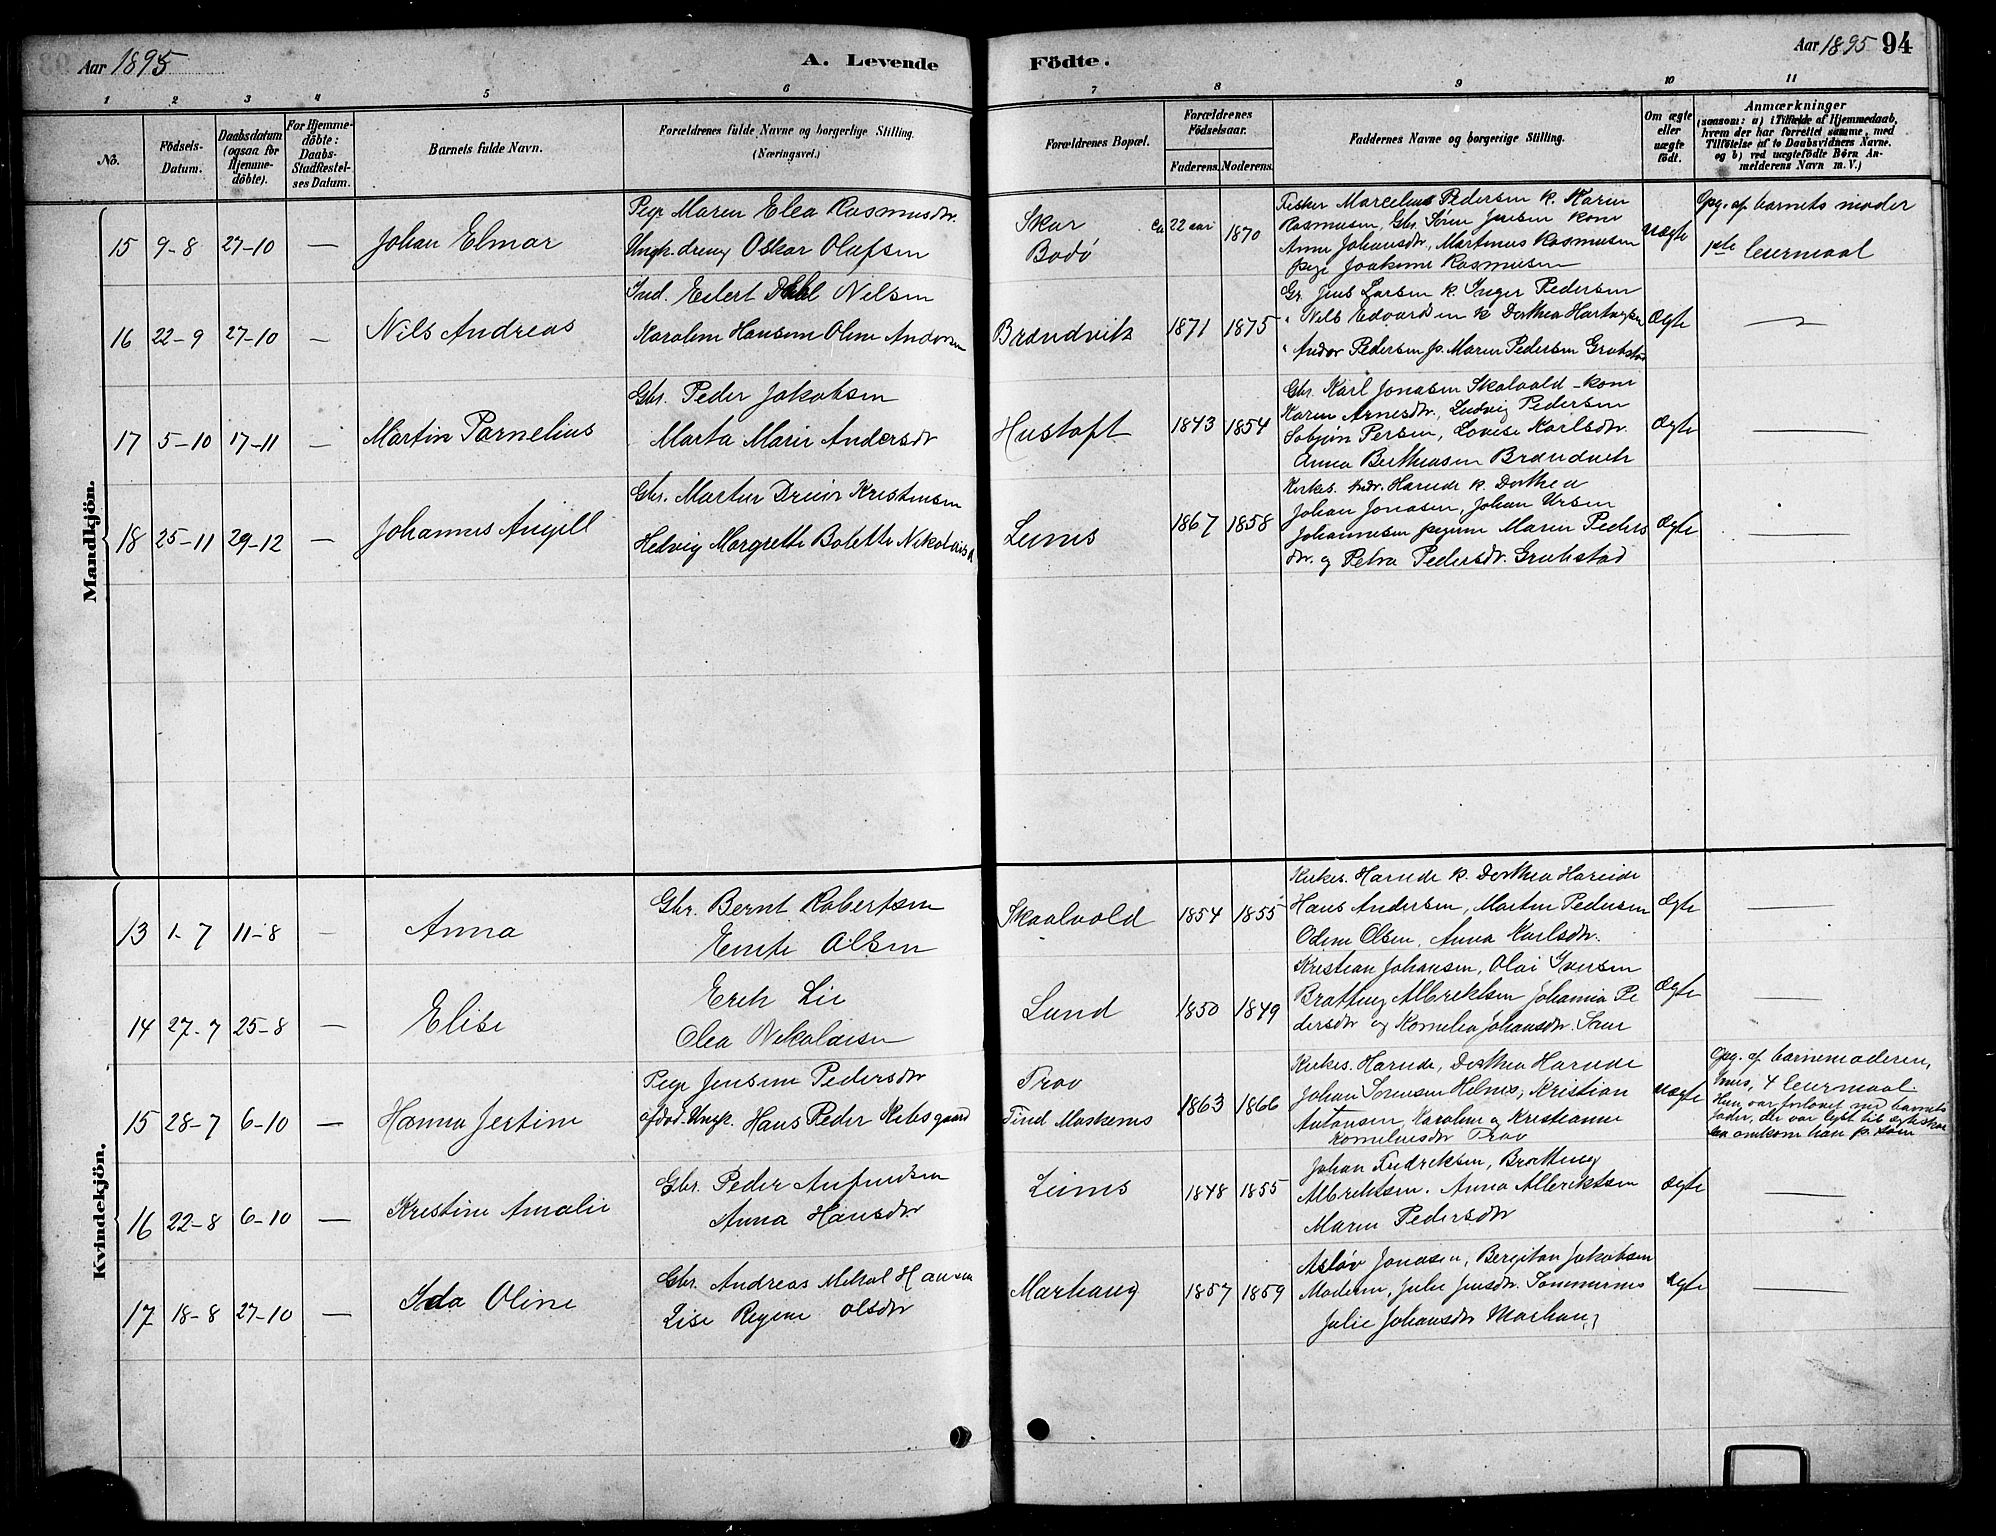 Aar 1895
A. Levende
Födte.
Aar 1895 94
1 2 3 4 5 6 7 8 9 10 11
No.
Födsels-
Datum.
Daabsdatum
(ogsaa for
Hjemme-
döbte).
For Hjemme-
döbte:
Daabs-
Stadfæstel-
ses Datum.
Barnets fulde Navn.
Forældrenes fulde Navne og borgerlige Stilling.
(Næringsvei.)
Forældrenes Bopæl.
Forældrenes
Födselsaar.
Faderens. Moderens.
Faddernes Navne og borgerlige Stilling.
Om ægte
eller
uægte
födt.
Anmærkninger
(saasom: a) i Tilfælde af Hjemmedaab,
hvem der har forrettet samme, med
Tilföielse af to Daabsvidners Navne.
og b) ved uægtefödte Börn An-
melderens Navn m. V.)
Mandkjön.
15 9-8 27-10 — Johan Elmar
Pige Maren Elea Rasmusdtr.
Ungk. dreng Oskar Olafsen
Skar
Bodø
22 aar 1870
Fisker Marcelius Pedersen k. Karen
Rasmusen, Gbr. Søren Jensen kone
Anne Johansdtr., Martinus Rasmusen
pige Joakime Rasmusen
uægte
Opg. af barnets moder
1ste leiermaal
16 22-9 27-10 — Nils Andreas
Ind. Eilert Dahl Nilsen
Karoline Hansine Oline Andersen
Brændvik
1871 1875
Gr. Jens Larsen k. Inger Pedersen
" Nils Edvardsen k Dorthea Hartvigsen
" Andor Pedersen p. Maren Pedersen Grubstad
Ægte —
17 5-10 17-11 — Martin Parnelius
Gbr. Peder Jakobsen
Marta Marie Andersdtr
Hustoft
1843 1854
Gbr. Karl Jonasen Skalvold - kone
Karen Arnesdtr., Ludvig Pedersen
Persen, Lovise Karlsdtr.
Anna Bertheusen Brændvik
Ægte —
18 25-11 29-12 — Johannes Angell
Gbr. Martin Kristensen
Helvig Margrethe Bolette Nikolaisd
Leines
1867 1858
Kirkes. Hareide k. Dorthea
Johan Jonasen, Johan Ursin
Johannesen pigerne Maren Peders
dtr. og Petra Pedersdtr. Grubstad
Ægte —
Kvindekjön.
13 1-7 11-8 — Anna
Gbr. Bernt Robertsen
Olsen
Skaalvold
1854 1855
Kirkes. Hareide k. Dorthea Hareide
Hans Andersen, Martin Pedersen
Odine Olsen, Anna Karlsdtr.
Ægte —
14 27-7 25-8 — Elise
Erik Lie
Olea Nikolaisen
Lund
1850 1849
Kristian Johansen, Olai Iversen
Bratteng Albriktsen Johanna Pe
dersdtr og Kornelia Johansdtr.
Ægte —
15 28-7 6-10 — Hanna Jertine
Pige Jensine Pedersdtr
afdød Ungk. Hans Peder Kibsgaard
Trøv
Tind Moskenes
1863 1866
Kirkes. Hareide, Dorthea Hareide
Johan Sørensen Helnes, Kristian
Antonsen, Karoline og Kristianne
Korneliusdtr Trøv
uægte
Opg. af barnemoderen,
4 leiermaal.
Hun var forlovet med barnets
fader, der var lyst til ægteskab
omkom han p. søen
16 22-8 6-10 — Kristine Amalie
Gbr. Peder Anfindsen
Anna Hansdtr
Leines
1848 1855
Johan Fredriksen, Bratteng
Albriktsen. Anna Albriktsen
Maren Pedersdtr
Ægte —
17 18-8 27-10 — Ida Oline
Gbr. Andreas Mikal Hansen
Lise Regine Olsdtr
Marhaug
1857 1859
Asløv Jonasen, Bergitan Jakobsen
Moderen, Julie Jensdtr. Sommernes
Julie Johansdtr Marhaug
Ægte —